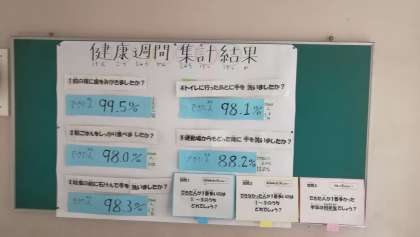 健康週間 集計結果
けん こう しゅう かん しゅう けい けっ か
できた人 99.5%
④トイレに行ったあとに手を 洗いましたか？
できた人 98.1%
②朝ごはんをしっかり食べま したか？
できた人 98.0%
⑤運動場からもどった時に 手を 洗いましたか？
できた人 88.2%
③給食の前に石けんで手を 洗いましたか？
できた人 98.3%
できた人が1番多いのは
①～⑤のうち
どれでしょう？
できなかった人が1番多いのは
①～⑤のうち
どれでしょう？
できた人が1番多かった
学年は何年生でしょう？